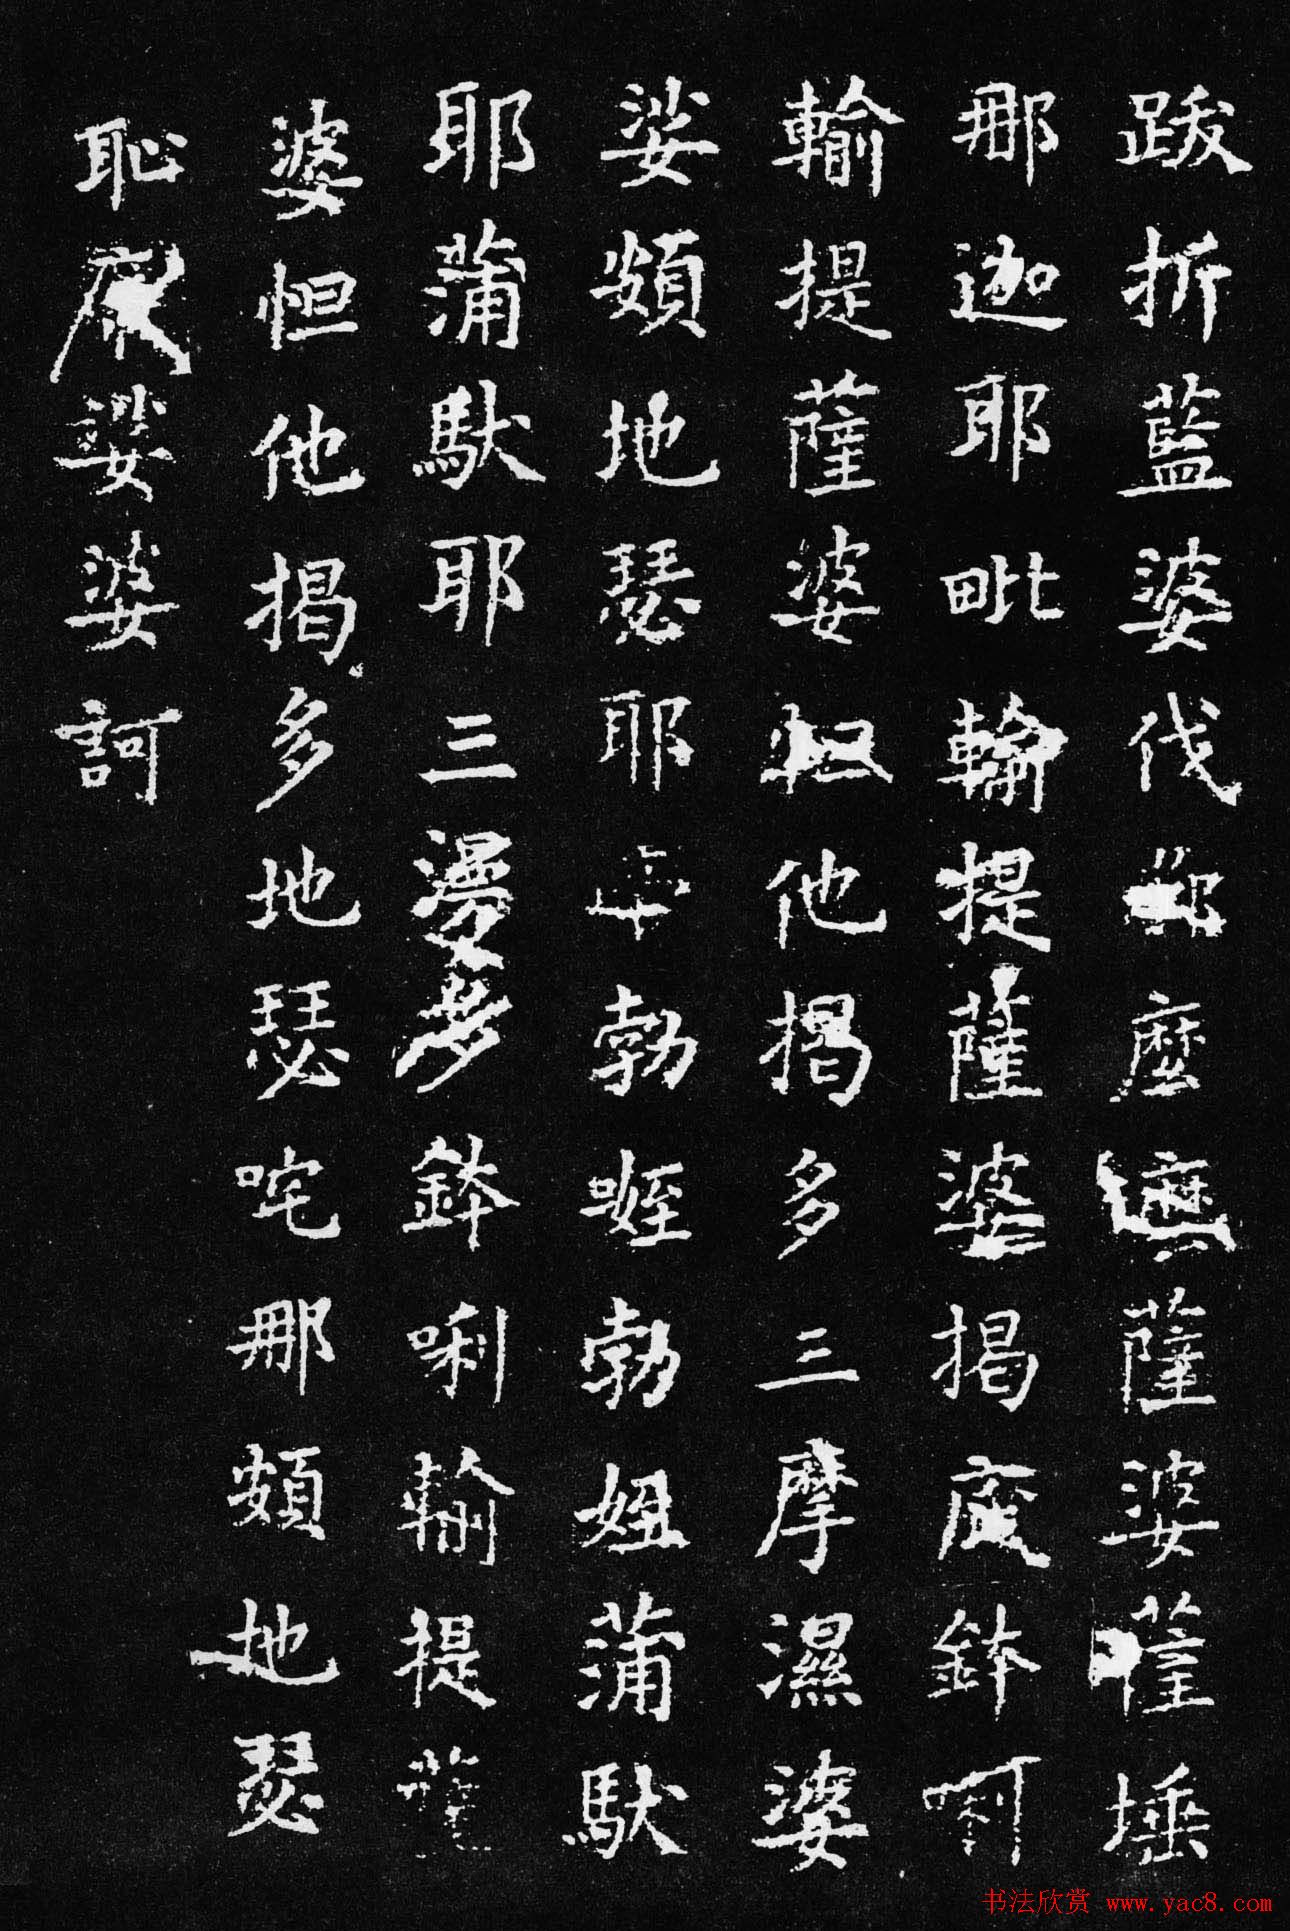 跋折藍婆伐麼薩婆薩埵
那迦耶毗輸提薩婆揭鉢唎
輸提薩婆怛他揭多三摩濕婆
娑頞地瑟耶勃哐勃妞蒲馱
耶蒲馱耶三漫多鉢唎輸提薩
婆怛他揭多地瑟咤那頞地瑟
恥娑婆訶
书法欣赏 www.yac8.com